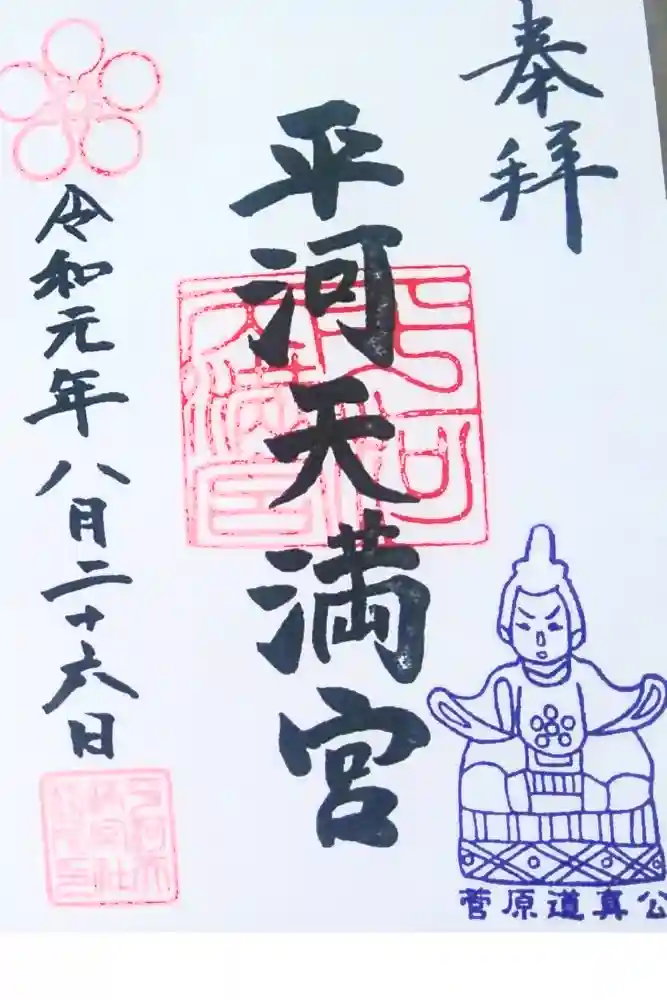 奉拝
平河天満宮
令和元年八月二十六日
菅原道真公